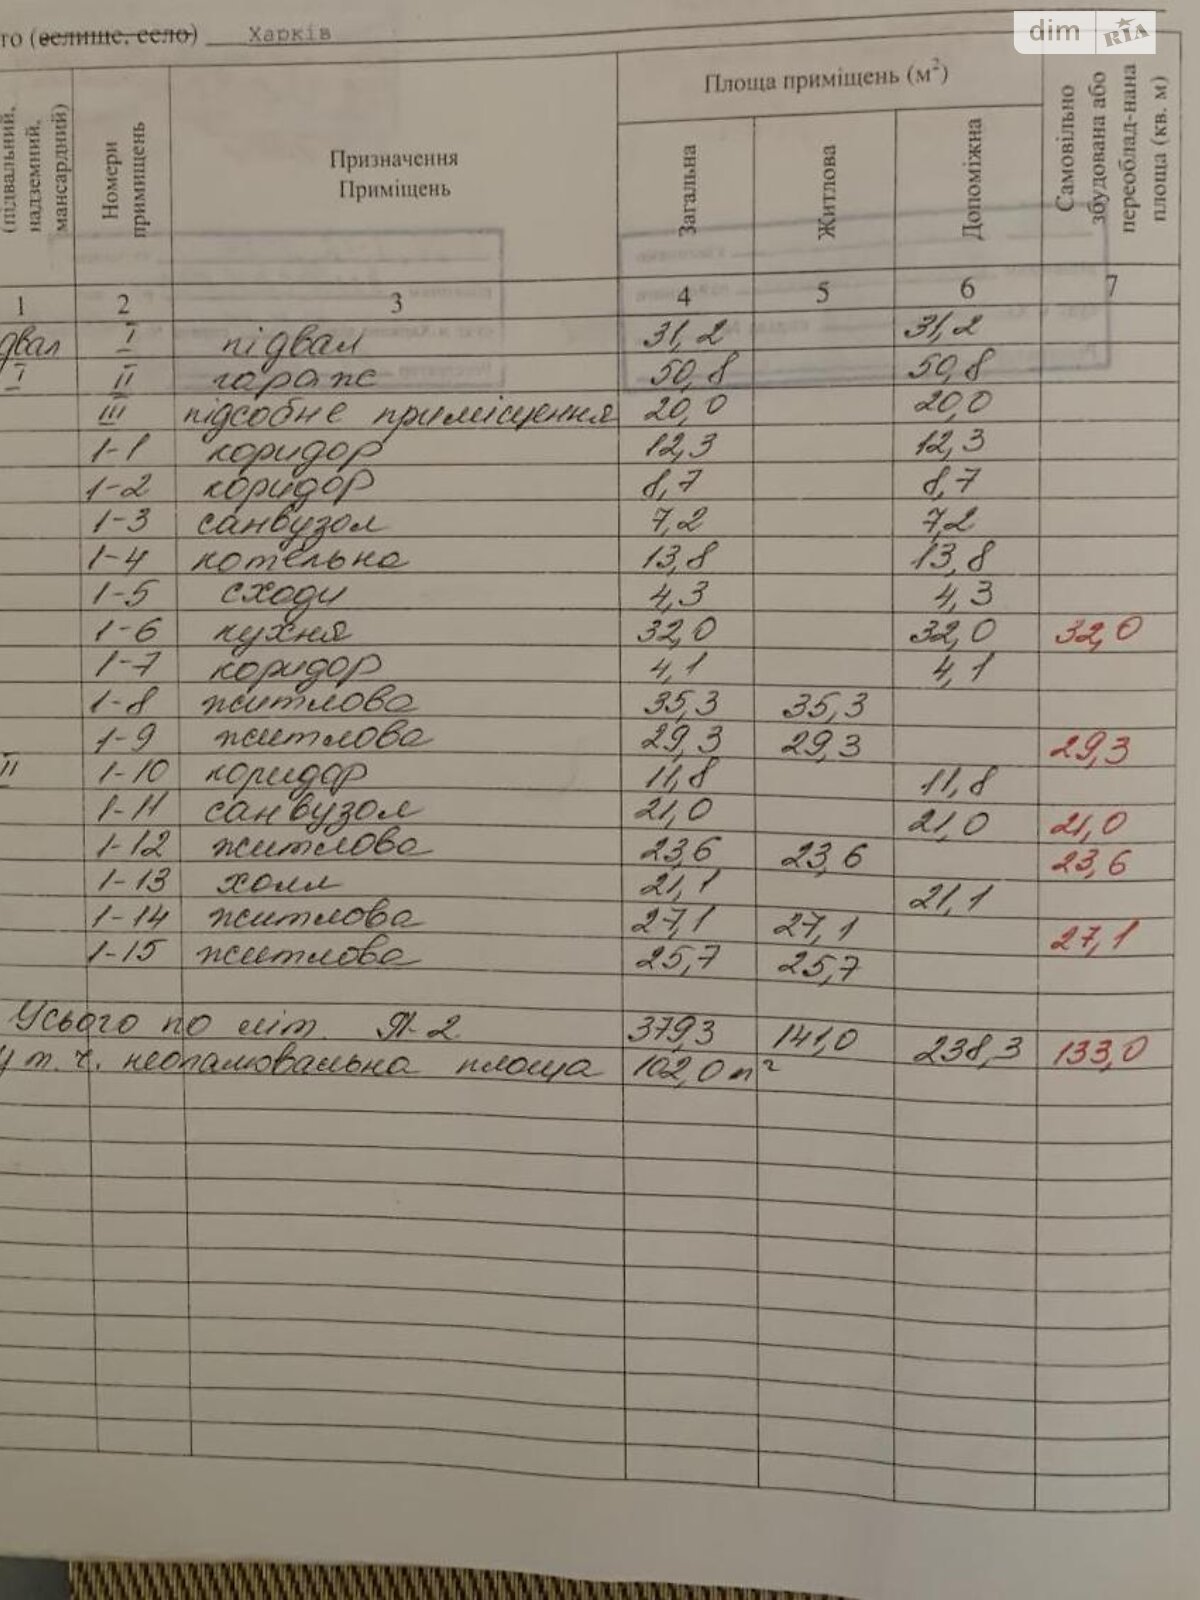 dim RIA
то (селище, село) Харків
(підвальний, надземний, мансардний)
Номери примищень
Призначення Приміщень
Площа приміщень (м²)
Загальна
Житлова
Допоміжна
Самовільно збудована або переоблад-нана площа (кв. м)
1 2 3 4 5 6 7
двал I підвал 31,2 31,2
I II гараж 50,8 50,8
III підсобне приміщення 20,0 20,0
1-1 коридор 12,3 12,3
1-2 коридор 8,7 8,7
1-3 санвузол 7,2 7,2
1-4 котельна 13,8 13,8
1-5 сходи 4,3 4,3
1-6 кухня 32,0 32,0 32,0
1-7 коридор 4,1 4,1
1-8 житлова 35,3 35,3
1-9 житлова 29,3 29,3 29,3
II 1-10 коридор 11,8 11,8
1-11 санвузол 21,0 21,0 21,0
1-12 житлова 23,6 23,6 23,6
1-13 холл 21,1 21,1
1-14 житлова 27,1 27,1 27,1
1-15 житлова 25,7 25,7
Усього по літ. Л-2 379,3 141,0 238,3 133,0
у т. ч. неопалювальна площа 102,0 м²